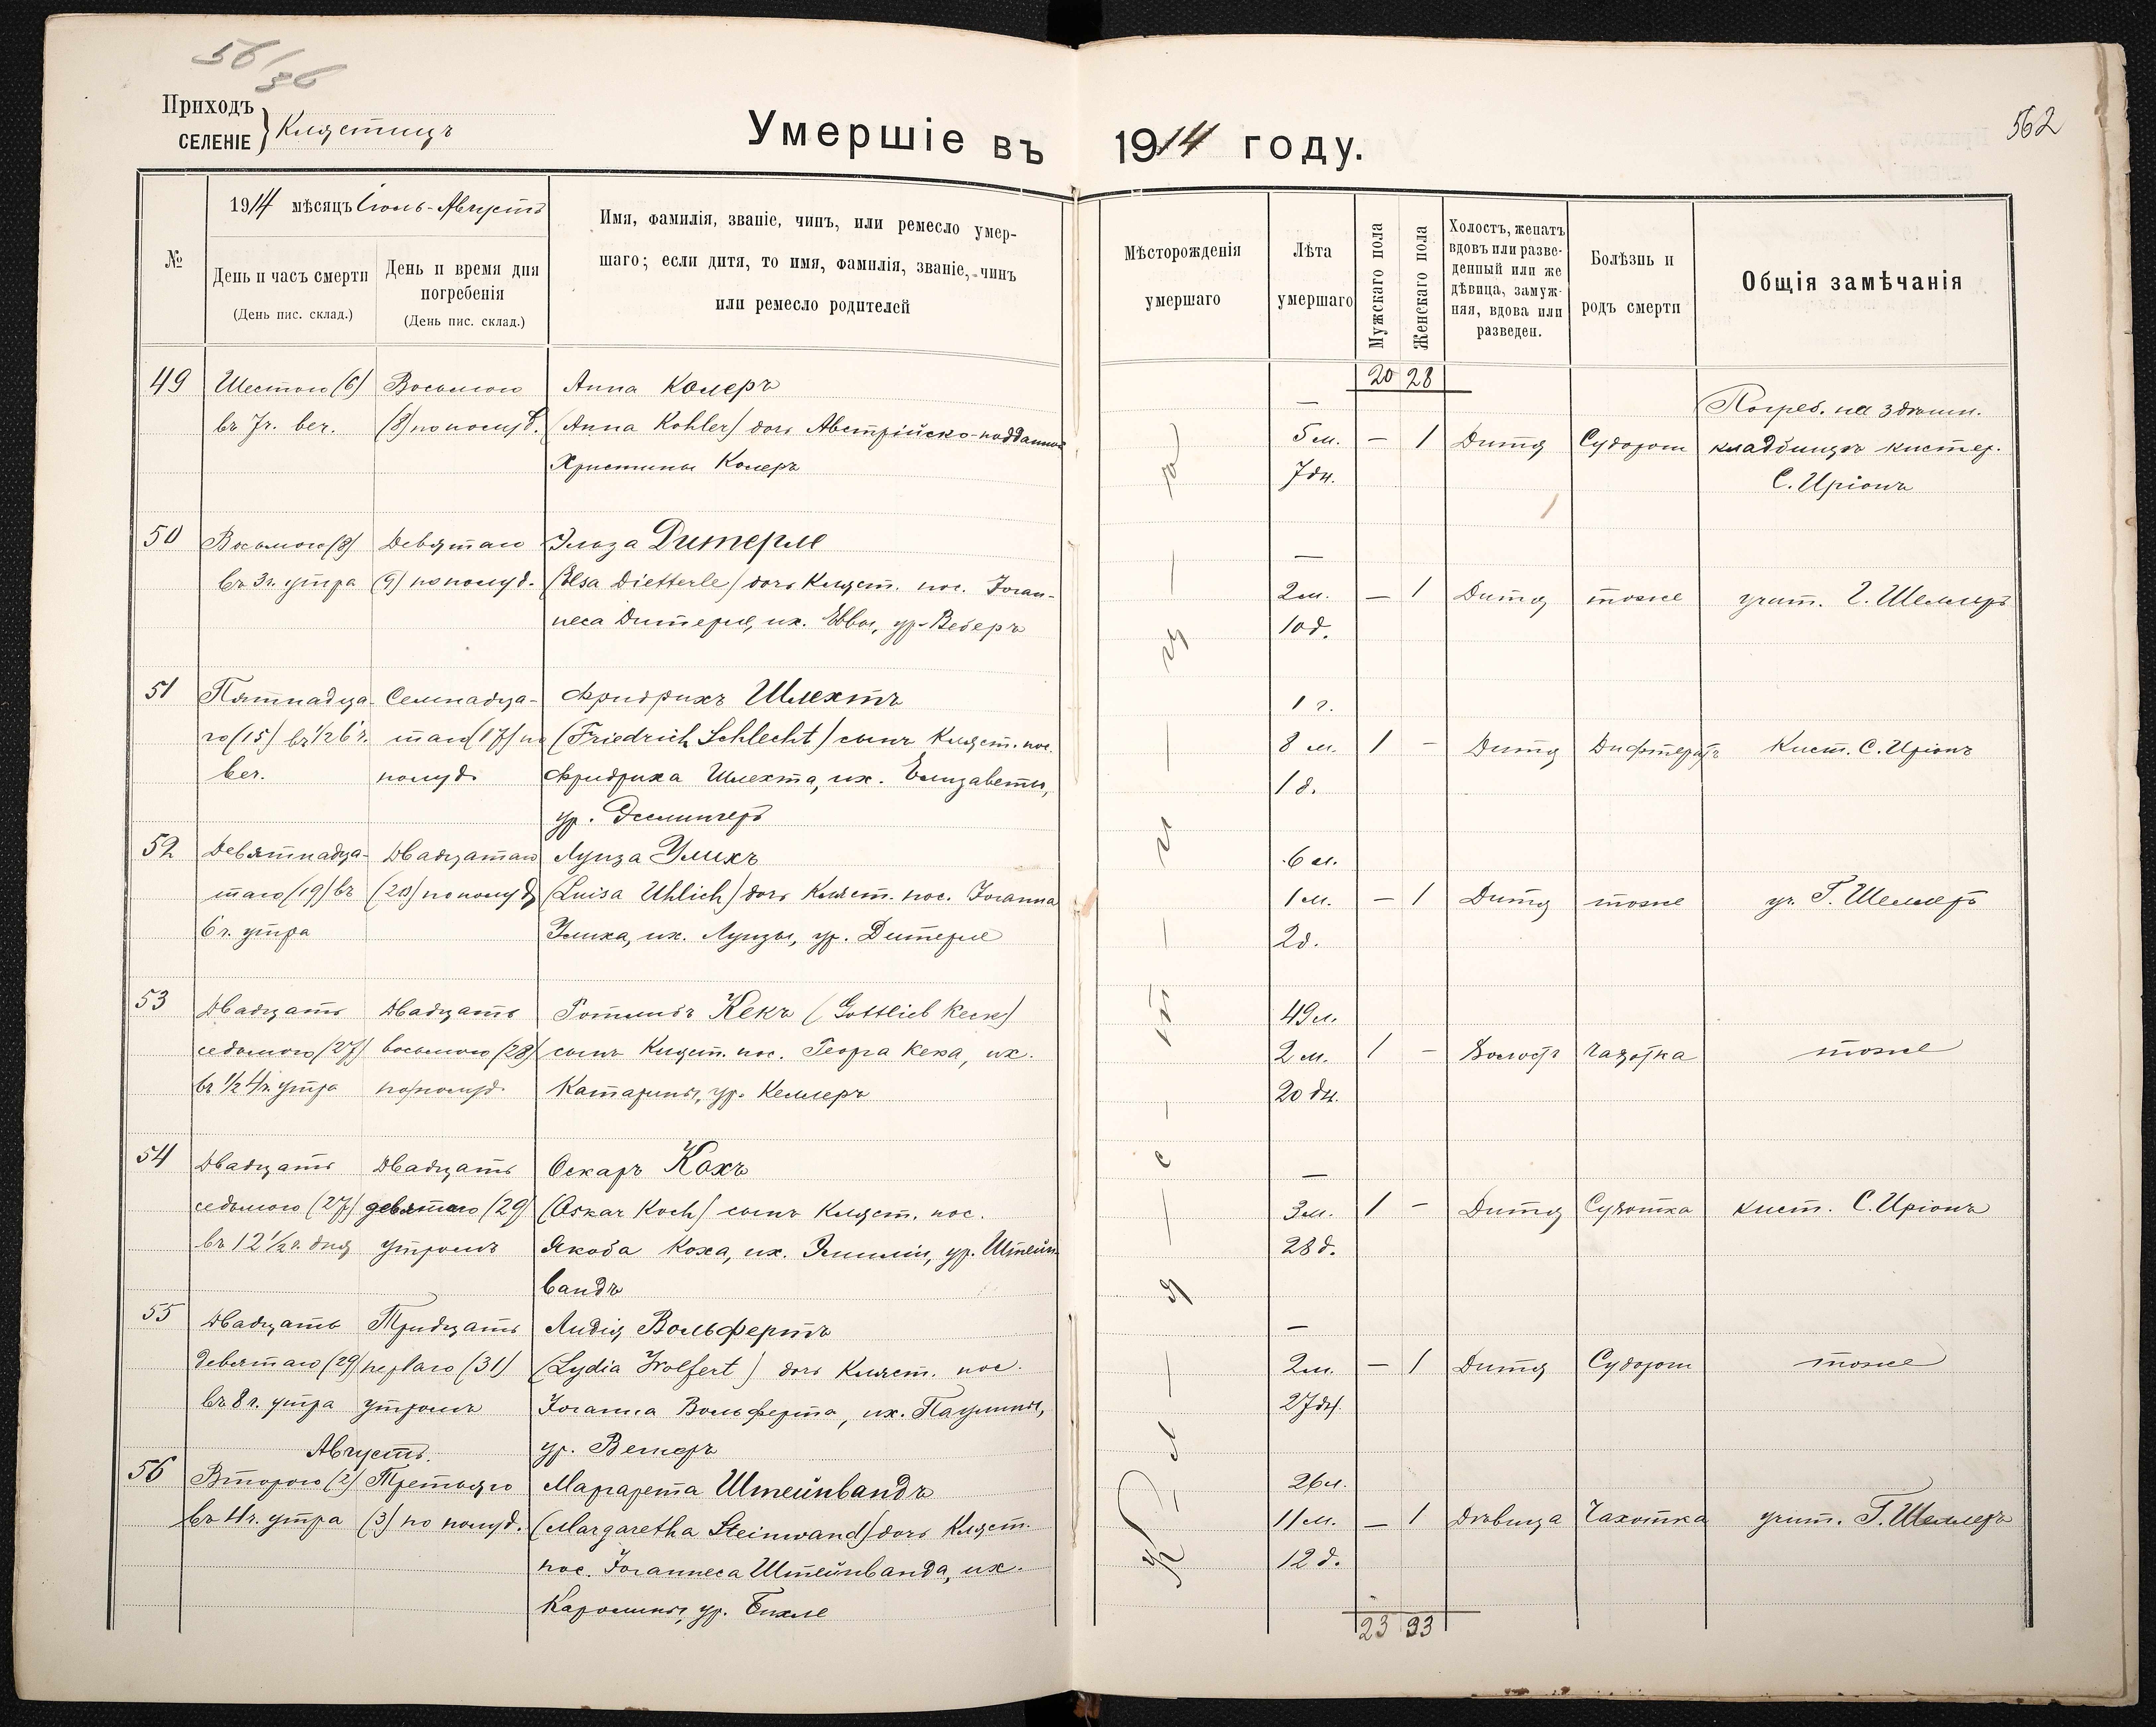 56/56
Приходъ
СЕЛЕНІЕ } Клястицъ
Умершіе въ 1914 году.
562
№
1914 мѣсяцъ Іюль-Августъ
День и часъ смерти
(День пис. склад.)
День и время дня погребенія
(День пис. склад.)
Имя, фамилія, званіе, чинъ, или ремесло умер-
шаго; если дитя, то имя, фамилія, званіе, чинъ
или ремесло родителей
Мѣсторожденія
умершаго
Лѣта
умершаго
Мужскаго пола
Женскаго пола
Холостъ, женатъ
вдовъ или разве-
денный или же
дѣвица, замуж-
няя, вдова или
разведен.
Болѣзнь и
родъ смерти
Общія замѣчанія
20 28
К-л-я-с-т-и-ц-ъ
49
Шестого (6)
въ 7 ч. веч.
Восьмого
(8) пополуд.
Анна Колеръ
(Anna Kohler) дочь Австрійско-подданной
Христины Колеръ
—
5 м.
7 дн.
— 1
Дитя
Судороги
Погреб. на здѣшн.
кладбищѣ кистер.
С. Иріонъ
50
Восьмого (8)
въ 3 ч. утра
Девятаго
(9) пополуд.
Эльза Дитерле
(Elsa Dietterle) дочь Кляст. пос. Іоган-
неса Дитерле, и ж. Еввы, ур. Веберъ
—
2 м.
10 д.
— 1
Дитя
тоже
учит. Г. Шеллеръ
51
Пятнадца-
го (15) въ ½ 6 ч.
веч.
Семнадца-
таго (17) по
полуд.
Фридрихъ Шлехтъ
(Friedrich Schlecht) сынъ Кляст. пос.
Фридриха Шлехта, и ж. Елизаветы,
ур. Эсслингеръ
1 г.
8 м.
1 д.
1 —
Дитя
Дифтеритъ
Кист. С. Иріонъ
52
Девятнадца-
таго (19) въ
6 ч. утра
Двадцатаго
(20) пополуд.
Луиза Уликъ
(Luisa Uhlich) дочь Кляст. пос. Іоганна
Улика, и ж. Луизы, ур. Дитерле
6 л.
1 м.
2 д.
— 1
Дитя
тоже
уч. Г. Шеллеръ
53
Двадцать
седьмого (27)
въ ½ 4 ч. утра
Двадцать
восьмого (28)
пополуд.
Готлибъ Кекъ (Gottlieb Keck)
сынъ Кляст. пос. Георга Кека, и ж.
Катарины, ур. Келлеръ
49 л.
2 м.
20 дн.
1 —
Холостъ
Чахотка
тоже
54
Двадцать
седьмого (27)
въ 12 ½ ч. дня
Двадцать
девятаго (29)
утромъ
Оскаръ Кохъ
(Oskar Koch) сынъ Кляст. пос.
Якоба Коха, и ж. Эмиліи, ур. Штейн-
вандъ
—
3 м.
28 д.
1 —
Дитя
Сухотка
кист. С. Иріонъ
55
Двадцать
девятаго (29)
въ 8 ч. утра
Тридцать
перваго (31)
утромъ
Лидія Вольфертъ
(Lydia Wolfert) дочь Кляст. пос.
Іоганна Вольферта, и ж. Паулины,
ур. Велеръ
—
2 м.
27 дн.
— 1
Дитя
Судороги
тоже
Августъ.
56
Второго (2)
въ 4 ч. утра
Третьяго
(3) по полуд.
Маргарета Штейнвандъ
(Margaretha Steinwand) дочь Кляст.
пос. Іоганнеса Штейнванда, и ж.
Каролины, ур. Бихле
26 л.
11 м.
12 д.
— 1
Дѣвица
Чахотка
учит. Г. Шеллеръ
23 33